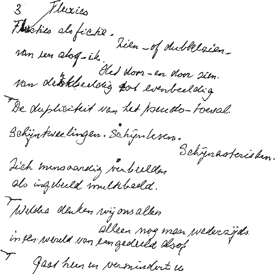 3 Flexies
Flexies als fictie.
Zien - of dubbelzien -
van een alsof-ik.
Het door- en door zien.
van dubbeldig tot evenbeeldig
De dupliciteit van het pseudo-toeval
Schijntweelingen. Schijnleven.
Schijnasterisken.
Zich minwaardig verbeelden
als ingebeeld multibeeld.
Welke denken wij ons allen
alleen nog maar wederzijds
in een wereld van een gedeeld alsof
Gaat heen en vermindert u